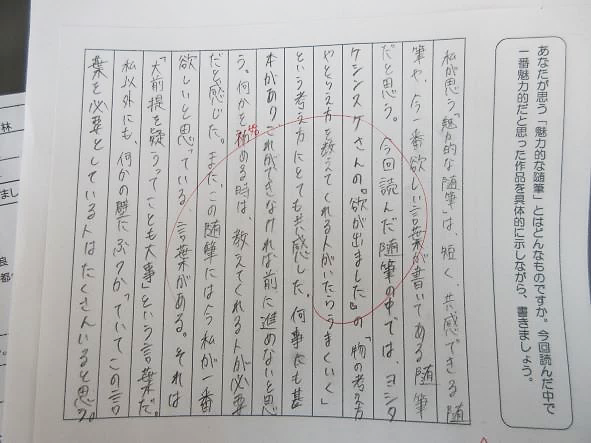 あなたが思う「魅力的な随筆」とはどんなものですか。今回読んだ中で
一番魅力的だと思った作品を具体的に示しながら、書きましょう。
私が思う「魅力的な随筆」は、短く、共感できる随
筆や、今一番欲しい言葉が書いてある随筆
だと思う。今回読んだ随筆の中では、ヨシタ
ケシンスケさんの『欲が出ました』の「物の考え方
やとらえ方を教えてくれる人がいたらうまくいく」
という考え方にとても共感した。何事にも基
本があり、これができなければ前に進めないと思
う。何かを始める時は、教えてくれる人が必要
だと感じた。また、この随筆には今私が一番
欲しいと思っている、言葉がある。それは
「大前提を疑うってことも大事」という言葉だ。
私以外にも、何かの壁にぶつかっていてこの言
葉を必要としている人はたくさんいると思う。
林
まし
良
都